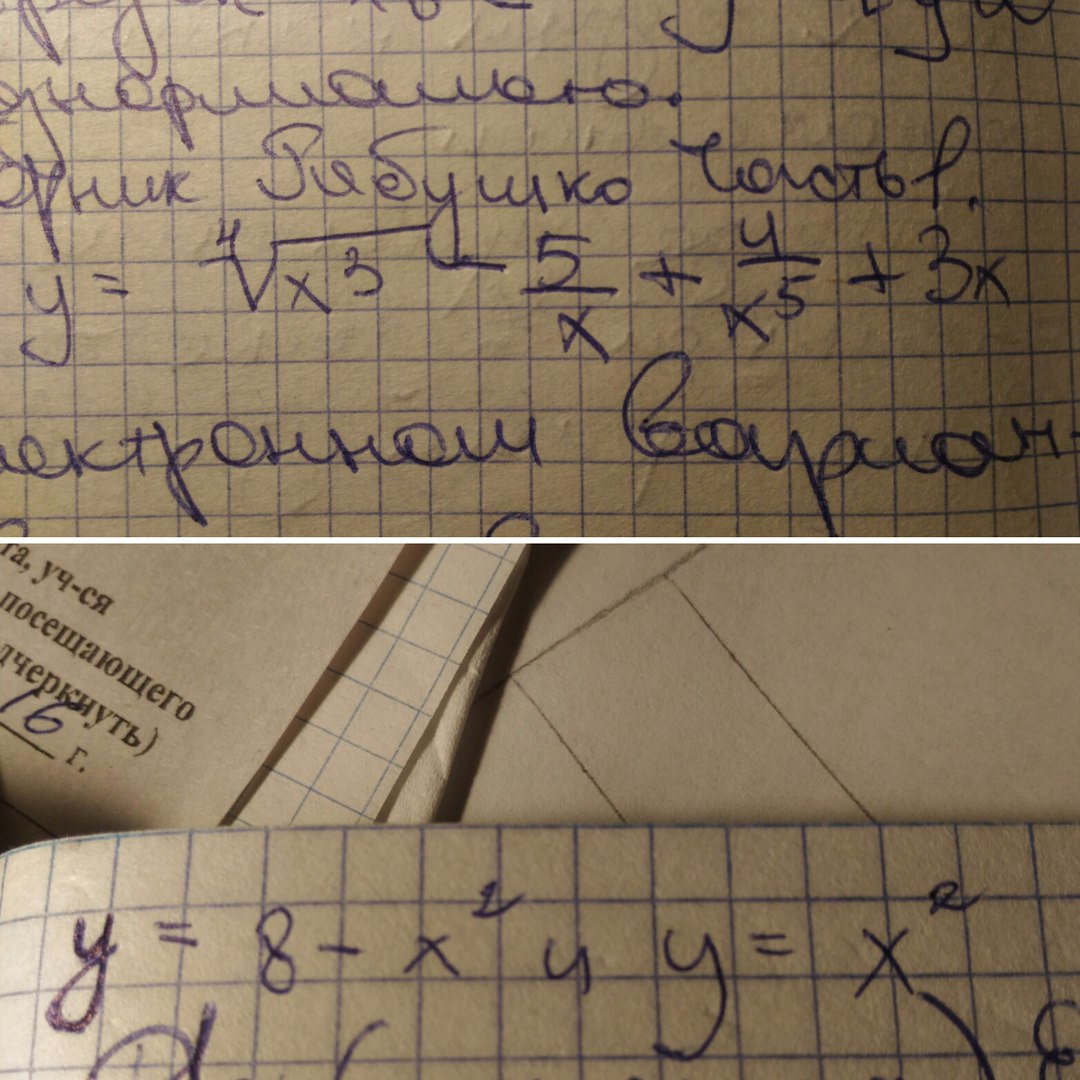 рник Рябушко Часть 1.
y = ∜x³ − 5/x + 4/x⁵ + 3x
лектронном вариан-
та, уч-ся
посещающего
дчеркнуть)
16 г.
y = 8 - x² и y = x²